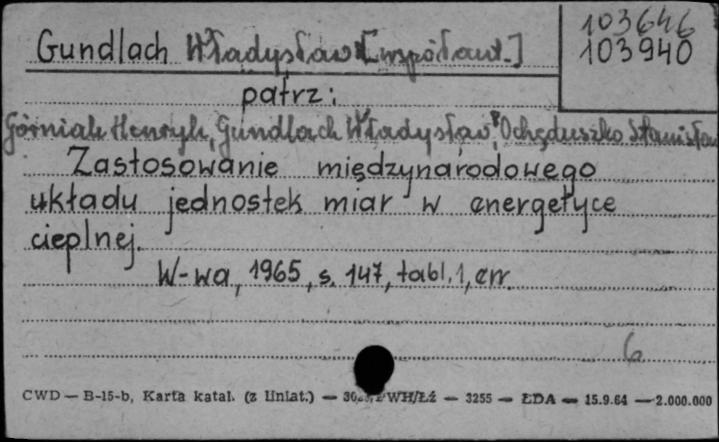 103646
103940
Gundlach Władysław [współaut.]
patrz:
Górniak Henryk, Gundlach Władysław, Ochęduszko Stanisław
Zastosowanie międzynarodowego
układu jednostek miar w energetyce
cieplnej.
W-wa, 1965, s. 147, tabl. 1, err.
6
CWD — B-15-b, Karta katal. (z liniat.) — WH/Łż — 3255 — ŁDA — 15.9.64 — 2.000.000